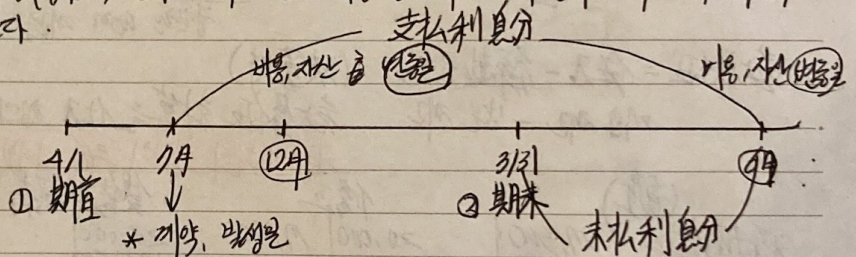 다.
支払利息分
비용, 자산 변동일
비용, 자산 변동일
4/1 7月 12月 3/31
① 期首 ② 期末
* 계약, 발생일 未払利息分